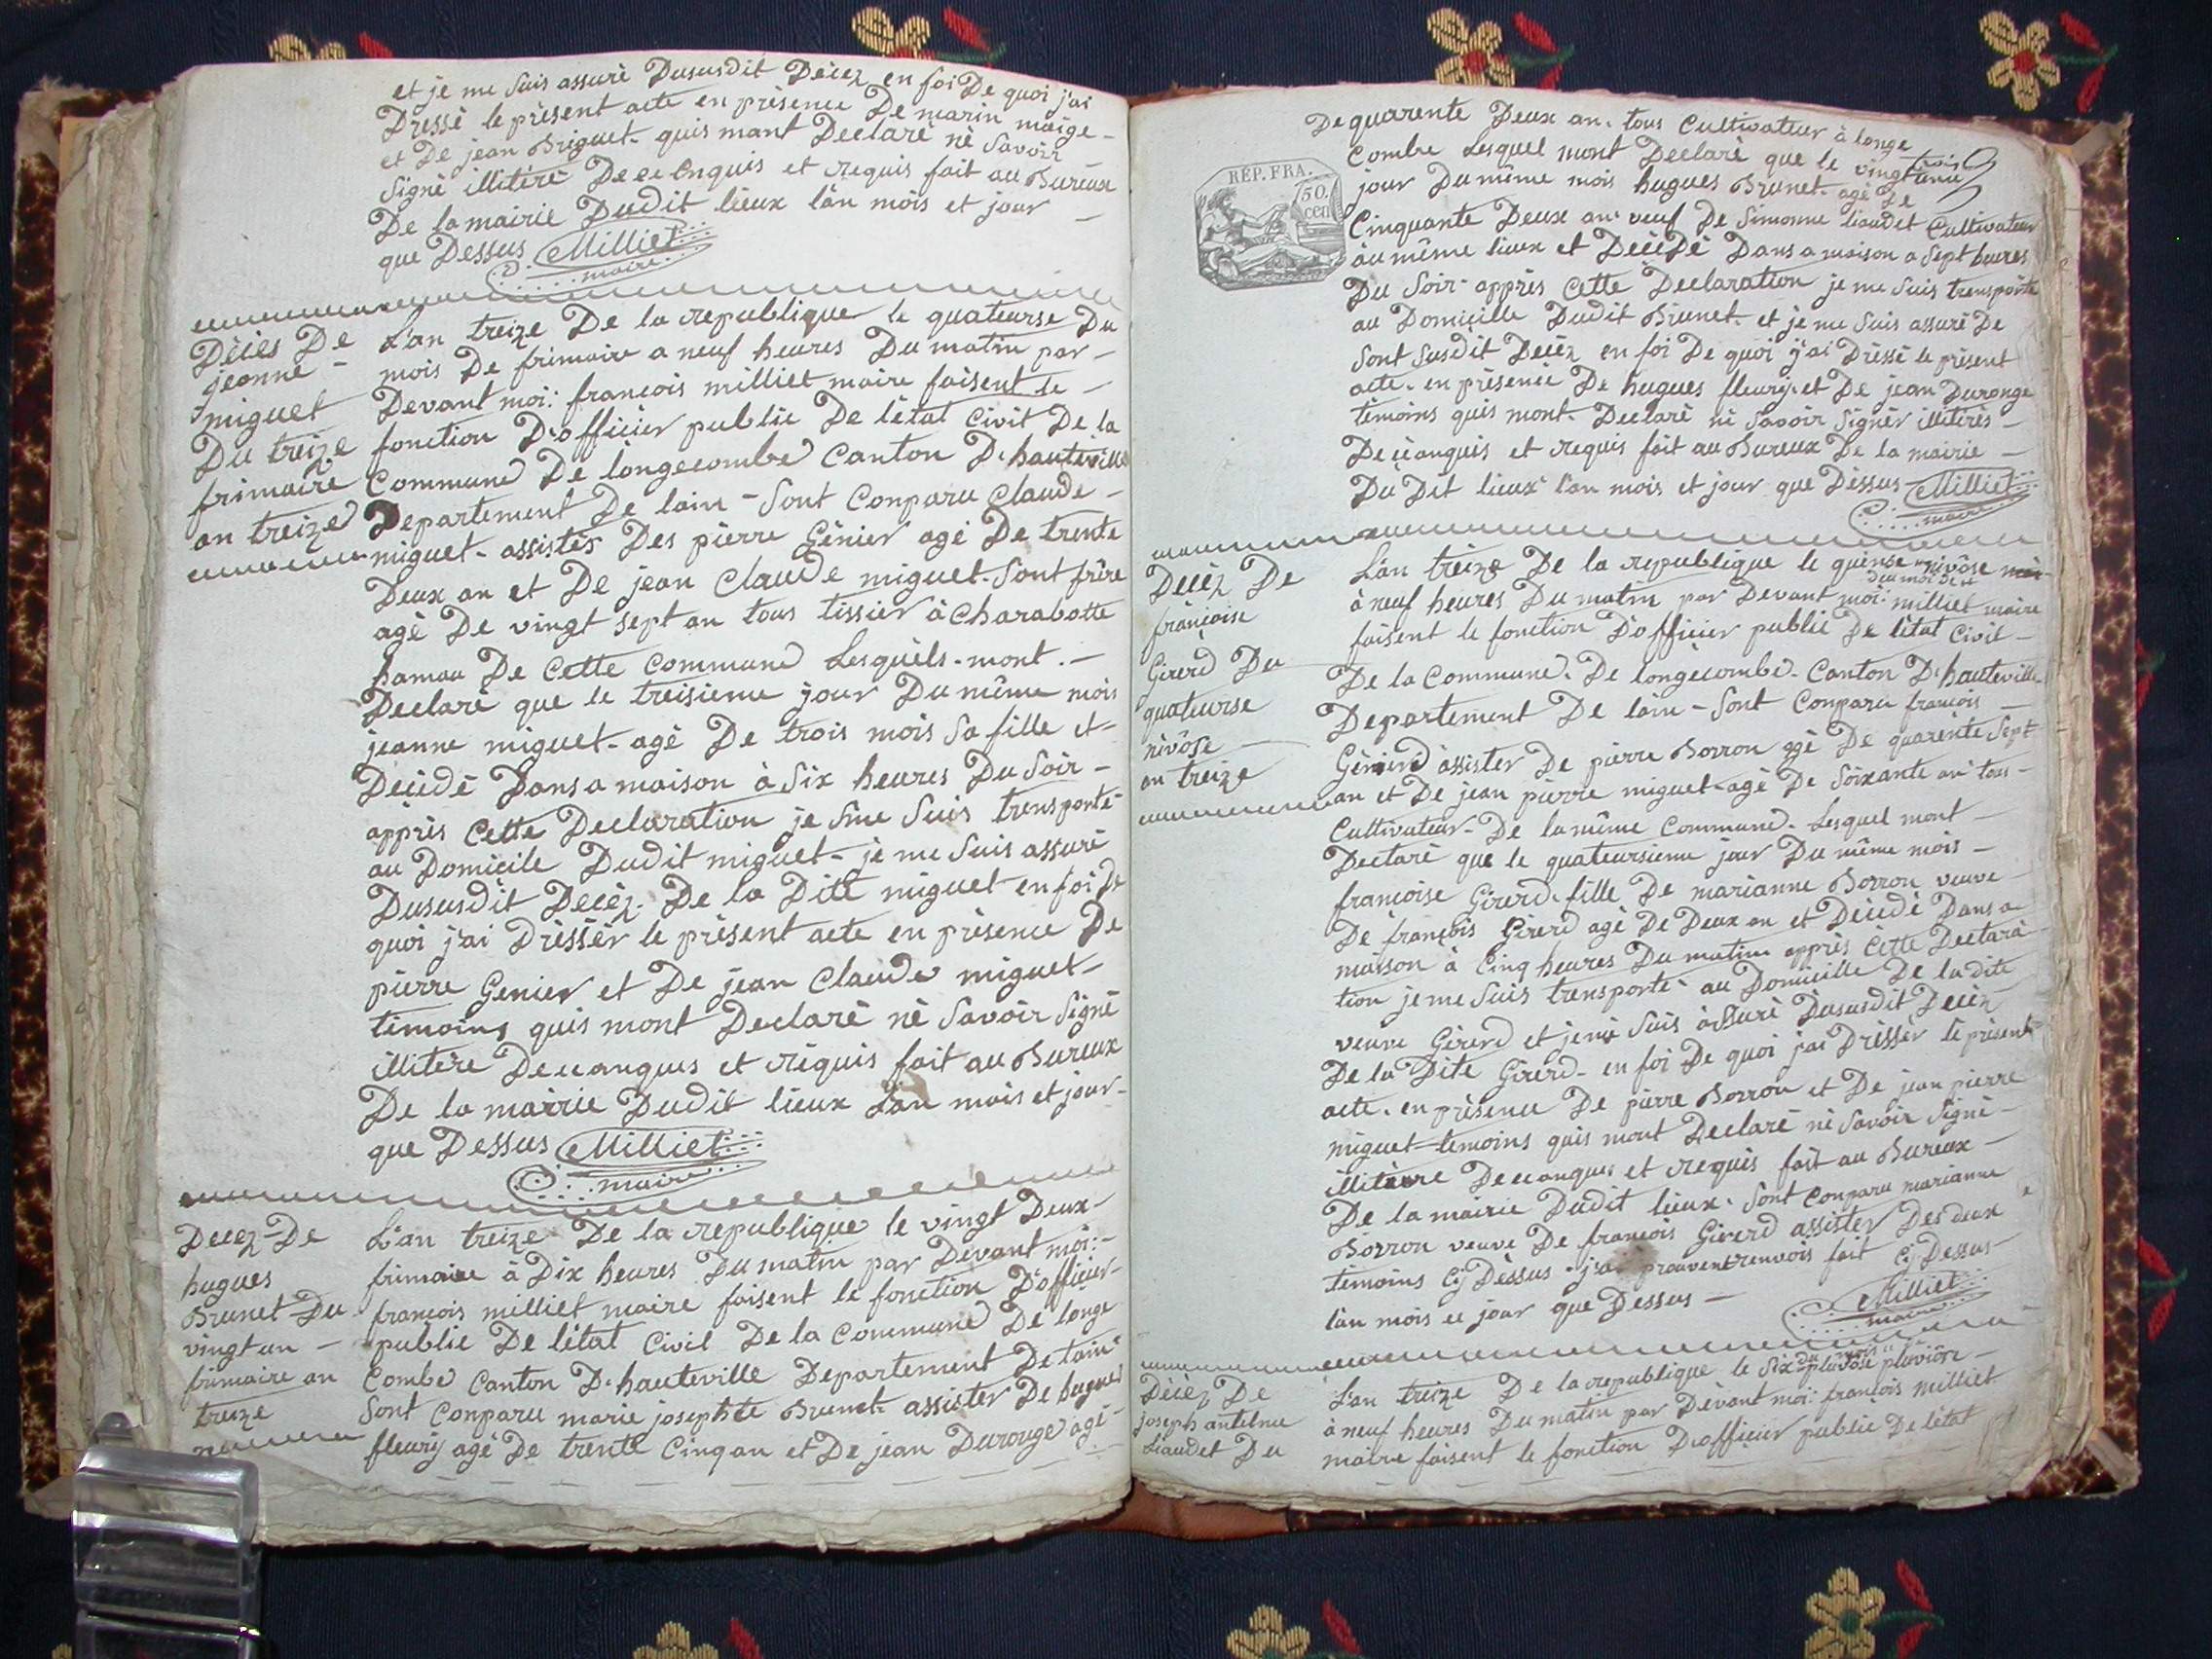 et je me suis assuré Dususdit Décez en foi De quoi j'ai
Dressé le présent acte en présence De marin maige -
et De jean Briguet - quis mant Declaré nè Savoir
Signé illitéré Dece Enquis et requis fait au Bureux
De la mairie Dudit lieux lan mois et jour -
que Dessus Milliet
maire
Décès De
jeanne -
miguet
Du treize
frimaire
an treize
L'an treize De la republique le quateurse Du
mois De frimaire a neuf heures Du matin par -
Devant moi: francois milliet maire faisent le -
fonction D'officier public De létat Civit De la
Commune De longecombe Canton D'hauteville
Departement De lain - Sont Conparu Claude -
miguet - assistés Des pièrre Génier agé De trente
Deux an et De jean Claude miguet - Sont frère
agè De vingt sept an tous tissier à Charabotte
hamau De Cette Commune Lesquèls - mont . -
Declaré que le treisieme jour Du même mois
jeanne miguet - agè De trois mois Sa fille et -
Décédé Dans a maison à Six heures Du Soir -
apprès Cette Declaration je me Suis trensporté -
au Domicile Dudit miguet - je me Suis assuré
Dususdit Décéz. De la Dite miguet en foi De
quoi j'ai Dréssér le présent acte en présence De
pièrre Genier et De jean Claude miguet -
témoins quis mont Declaré nè Savoir Signé
illitére Decanques et requis fait au Bureux
De la mairie Dudit lieux L'an mois et jour -
que Dessus Milliet
maire
Decez De
hugues
Brunet Du
vingt un -
frimaire an
treize
L'an treize De la republique le vingt Deux -
frimaire à Dix heures Du matin par Devant moi: -
francois milliet maire faisent le fonction D'officier -
public De létat Civil De la Commune De longe
Combe Canton D'hauteville Departement De lain
Sont Conparu marie josephte Brunet - assister De hugues
fleury agé De trente Cinq an et De jean Durouge agé -
De quarente Deux an. tous Cultivateur à longe
Combe Lesquel mont Declaré que le vingt
jour Du même mois hugues Brunet - agé De
Cinquante Deux an. veuf De Simonne liaudet Cultivateur
RÉP. FRA.
50.
cen
àu même lieux et Décédé Dans a maison a Sept heures
Du Soir - apprès Cette Declaration je me Suis trensporté
au Domicille Dudit Brunet. et je me Suis assuré De
Sont Susdit Décéz en foi De quoi j'ai Dréssé le présent
acte. en présence De hugues fleury. et De jean Durouge
témoins quis mont. Declaré nè Savoir Signér illitérés -
De cèanquis et requis fait au Bureux De la mairie -
Du Dit lieux l'an mois et jour que Dèssus Milliet
maire
Décéz De
françoise
Girerd Du
quateurse
nivôse
an treize
L'an treize De la republique le quinse nivôse
à neuf heures Du matin par Devant moi: milliet maire
faisent le fonction D'officier public De létat Civil -
De la Commune. De longecombe. Canton D'hauteville
Departement De lain - Sont Conparu françois -
Génierd assister De pièrre Borron agé De quarènte Sept
an et De jean pièrre miguet - agé De Soixante an tous -
Cultivateur - De la même Commune. Lesquel mont -
Declaré que le quateursieme jour Du même mois -
françoise Girerd. fille De marianne Borron veuve
De françois Girerd agé De Deux an et Décédé Dans a
maison à Cinq heures Du matin apprès Cette Declara
tion je me Suis trensporté au Domicille De la dite
veuve Girerd et je me Suis àssuré Dususdit Décéz
De la Dite Girerd - en foi De quoi j'ai Dréssér le présent
acte. en présence De pièrre Borron et De jean pierre
miguet temoins quis mont Declaré nè Savoir Signé -
illitère Decanques et requis fait au Bureux -
De la mairie Dudit lieux. Sont Conparu marianne
Borron veuve De françois Girerd assister Des deux
temoins Cy Dèssus renvois fait Cy Dessus -
lan mois et jour que Dessus - Milliet
maire
Décéz De
joseph antelme
Liaudet Du
L'an treize De la republique le Six pluviôse -
à neuf heures Du matin par Dèvant moi: françois milliet
maire faisent le fonction D'officier public De létat